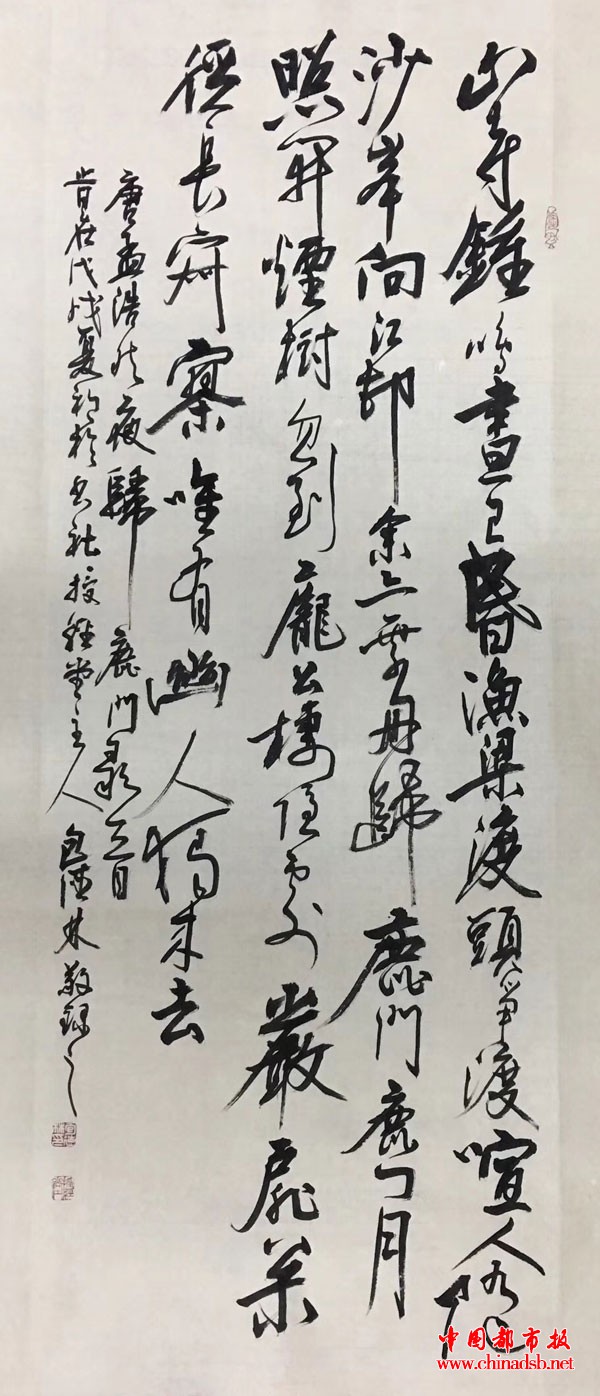 山寺鐘鳴晝已昏漁梁渡頭爭渡喧人隨
沙岸向江邨余亦乘舟歸鹿門鹿門月
照開煙樹忽到龐公棲隱處巖扉松
徑長寂寥唯有幽人獨來去
唐孟浩然夜歸鹿門歌一首
旹在戊戌夏初於社授經堂主人包林敬錄之
中国都市报
www.chinadsb.net